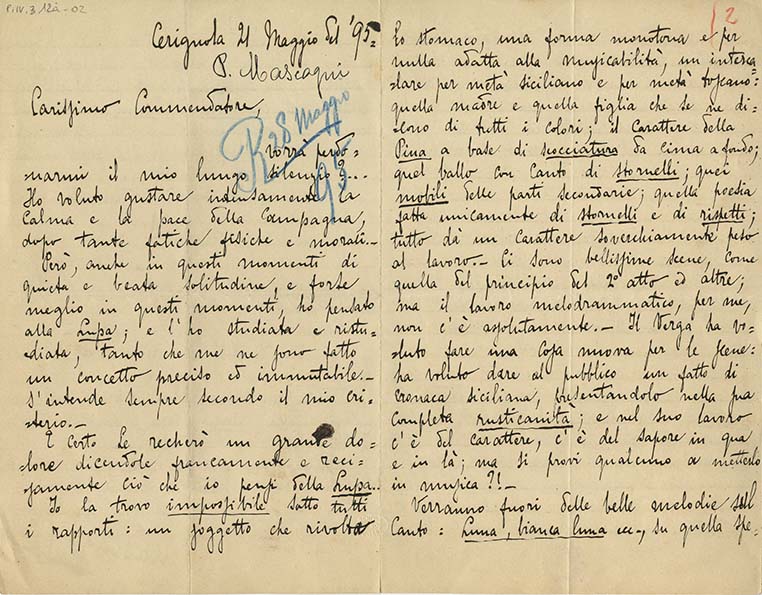 P.IV.3 12a-02
Cerignola 21 Maggio del '95=
P. Mascagni
Carissimo Commendatore,
R 28 Maggio
95
vorrà perdo=
narmi il mio lungo silenzio?...
Ho voluto gustare intensamente la
calma e la pace della campagna,
dopo tante fatiche fisiche e morali.-
Però, anche in questi momenti di
quieta e beata solitudine, e forse
meglio in questi momenti, ho pensato
alla Lupa; e l'ho studiata e ristu=
diata, tanto che me ne sono fatto
un concetto preciso ed immutabile.-
S'intende sempre secondo il mio cri=
terio.-
E certo Le recherò un grande do=
lore dicendole francamente e reci=
samente ciò che io pensi della Lupa..
Io la trovo impossibile sotto tutti
i rapporti: un soggetto che rivolta
2
lo stomaco, una forma monotona e per
nulla adatta alla musicabilità, un interca=
lare per metà siciliano e per metà toscano:
quella madre e quella figlia che se ne di=
cono di tutti i colori; il carattere della
Pina a base di scocciatura da cima a fondo;
quel ballo con canto di stornelli; quei
mobili delle parti secondarie; quella poesia
fatta unicamente di stornelli e di rispetti;
tutto dà un carattere soverchiamente peso
al lavoro.- Ci sono bellissime scene, come
quella del principio del 2° atto ed altre;
ma il lavoro melodrammatico, per me,
non c'è assolutamente.- Il Verga ha vo=
luto fare una cosa nuova per le scene:
ha voluto dare al pubblico un fatto di
cronaca siciliana, presentandolo nella sua
completa rusticanità; e nel suo lavoro
c'è del carattere, c'è del sapore in qua
e in là; ma si provi qualcuno a metterlo
in musica?!-
Verranno fuori delle belle melodie sul
canto: Luna, bianca luna ecc-, su quella spe-